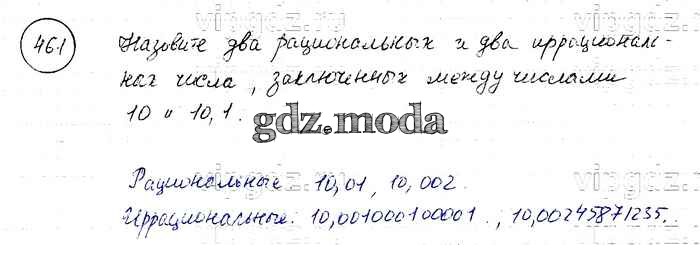 461
Назовите два рациональных и два иррациональ-
ных числа, заключенных между числами
10 и 10,1.
gdz.moda
Рациональные 10,01, 10,002.
Иррациональные: 10,001000100001.., 10,00245871235..
vipgdz.ru